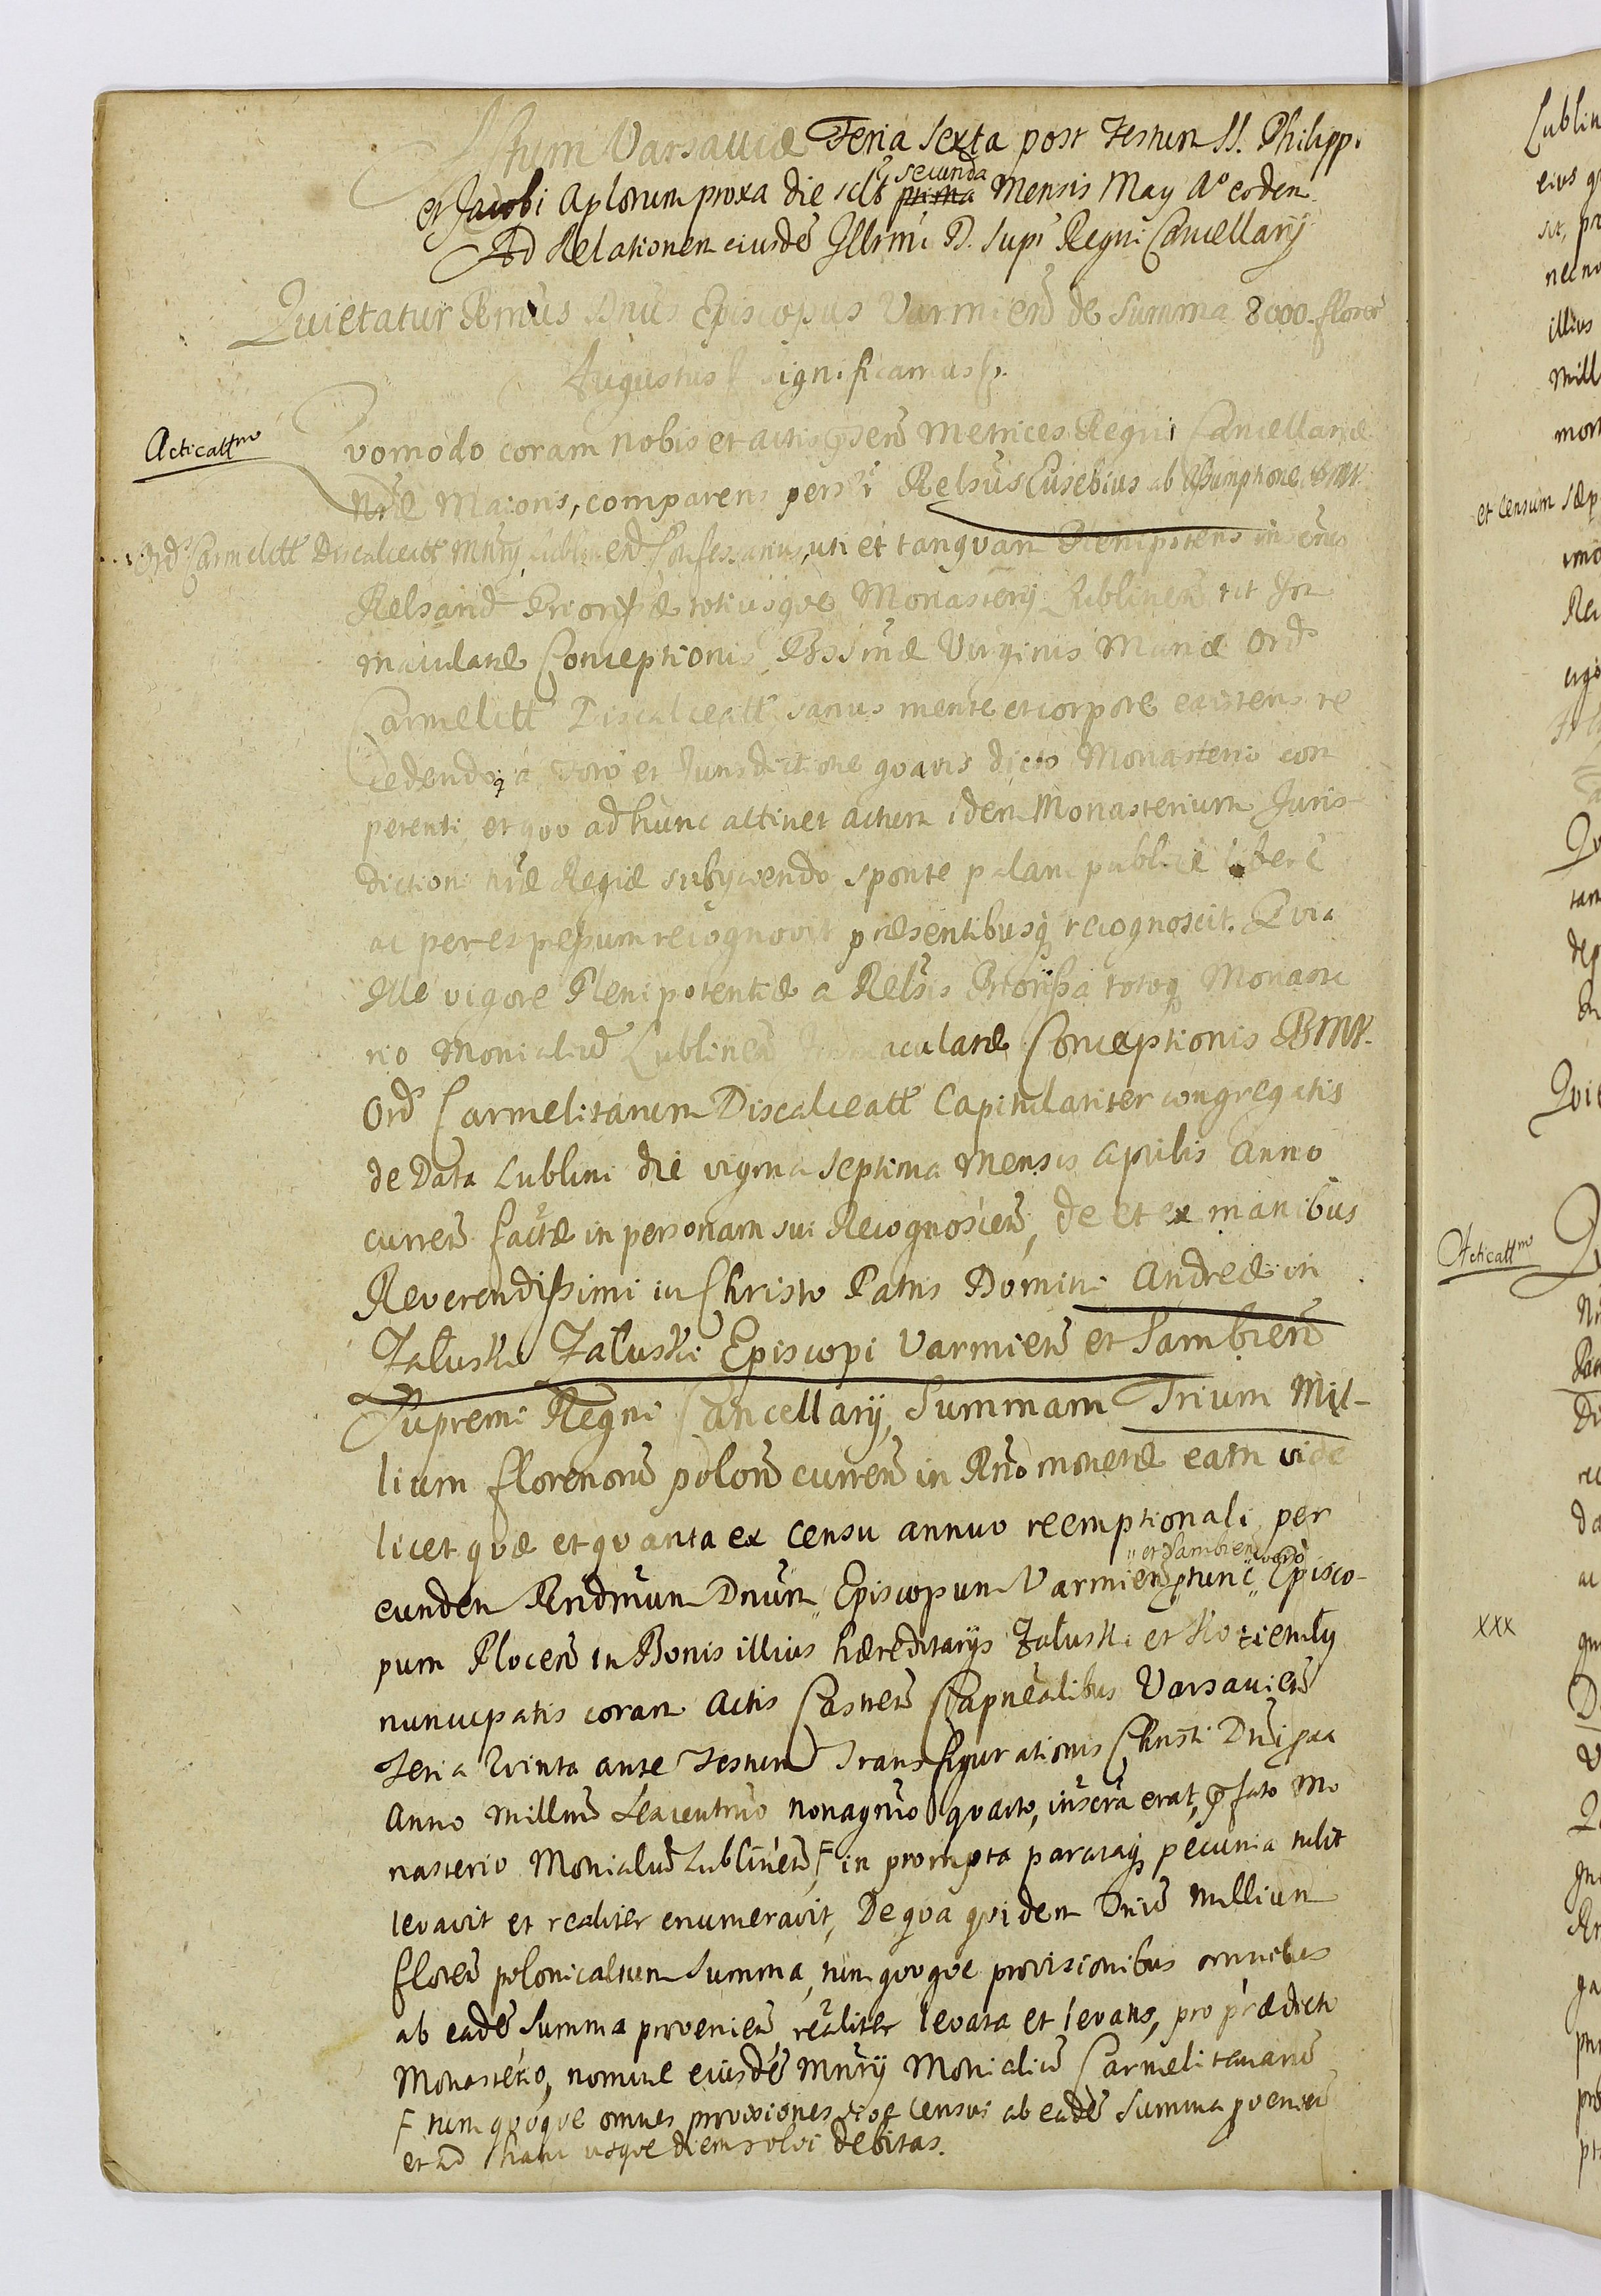 Actum Varsaviæ Feria sexta post Festum SS. Philippi
et Jacobi Aplorum proxa die sclt secunda prima Mensis May Aº eodem
Ad Relationem eiusdẽ Illrmi D. Supi Regni Cancellarij
Quietatur Rmus Dnus Episcopus Varmien de Summa 8000 floren
Augustus significamus
Acticattm
Quomodo coram nobis et actis psen Metrices Regni Cancellariæ
nræ Maioris, comparens persr Relsus Eusebius ab Assumptione BMV.
Ord Carmelitt Discalceatt Mnry Lublinen Confessarius, uti et tanquam Plenipotens
Relsarum Priorissæ totiusque Monasterij Lublinen tit Im
maculatæ Conceptionis Bssimæ Virginis Mariæ Ord
Carmelitt Discalceatt sanus mente et corpore existens re
cedendoq a foro et Jurisdictione quavis dicto Monasterio com
petenti, et quo ad hunc attinet actum idem Monasterium Juris
dictioni nræ Regiæ subijciendo, sponte palam publice libere
ac per expressum recognovit præsentibusq recognoscit. Quia
Ille vigore Plenipotentiæ a Relsis Priorissa totoq Monaste
rio Monialiũ Lublinen Immaculatæ Conceptionis BMV.
Ord Carmelitarum Discalceatt Capitulariter congregatis
de Data Lublini die vigma septima Mensis Aprilis Anno
curren factæ in personam sui Recognoscen, de et ex manibus
Reverendissimi in Christo Patris Domini Andreæ in
Załuski Załuski Episcopi Varmien et Sambien
Supremi Regni Cancellarij, Summam Trium Mil-
lium florenorũ polon curren in Rno monetæ eam vide
licet quæ et quanta ex censu annuo reemptionali per
eundem Rndmum Dnum Episcopum Varmien et Sambien ptunc vero Episco-
pum Plocen in Bonis illius hæreditarijs Załuski et Kozietuły
nuncupatis coram Actis Castren Capnealibus Varsavien
Feria Quinta ante Festum Transfigurationis Christi Dni pxa
Anno Millmo Sexcentmo nonagmo quarto, inscra erat, pfato Mo
nasterio Monialiũ Lublinen, F in prompta parataq pecunia tulit
levavit et realiter enumeravit, De qua quidem Triũ Millium
floren polonicalium Summa, tum quoque provisionibus omnibus
ab eadẽ Summa provenien realiter levata et levatis, pro prædicto
Monasterio, nomine eiusdẽ Mnrij Monialiũ Carmelitanarũ
F tum quoque omnes provisiones seog census ab eadẽ Summa pvenien
et ad hanc usque diem solvi debitas.
Lublin
et censum sæp
Acticattm
XXX